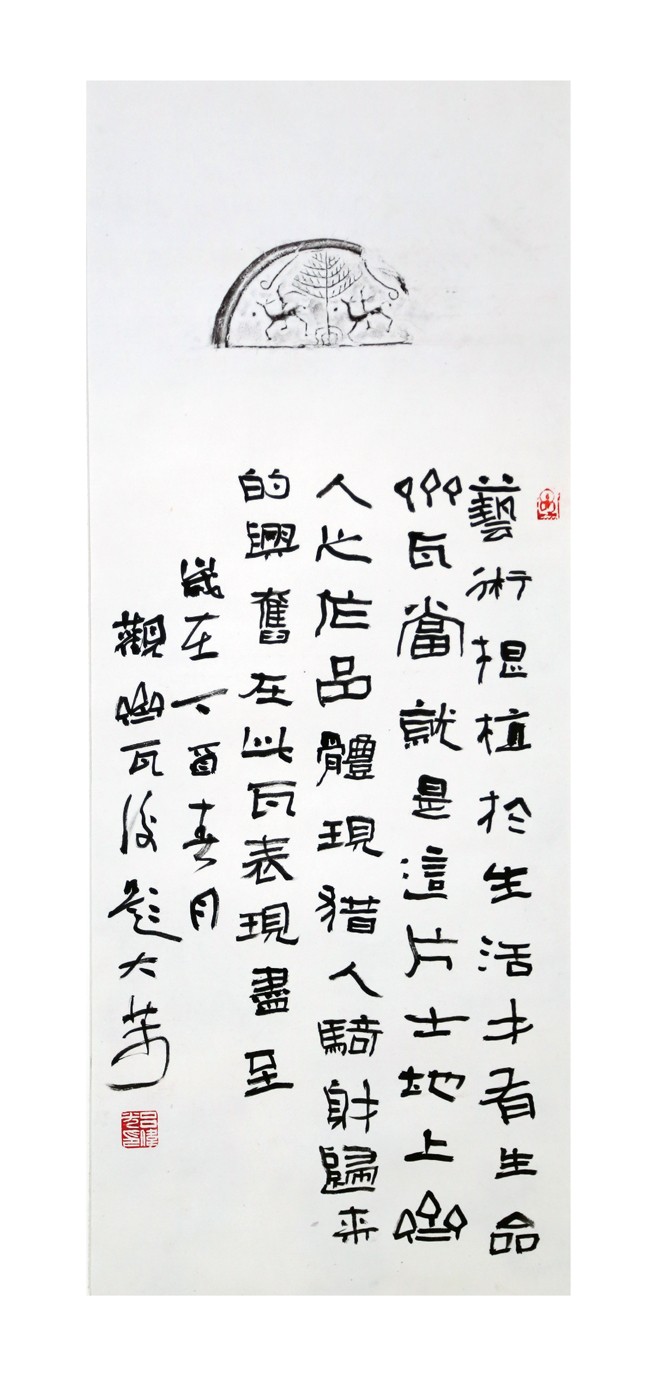 藝術根植於生活才有生命
齊瓦當就是這片土地上齊
人之作品體現猎人騎射歸来
的興奮在此瓦表現盡至
歲在丁酉春月
觀齊瓦後題大